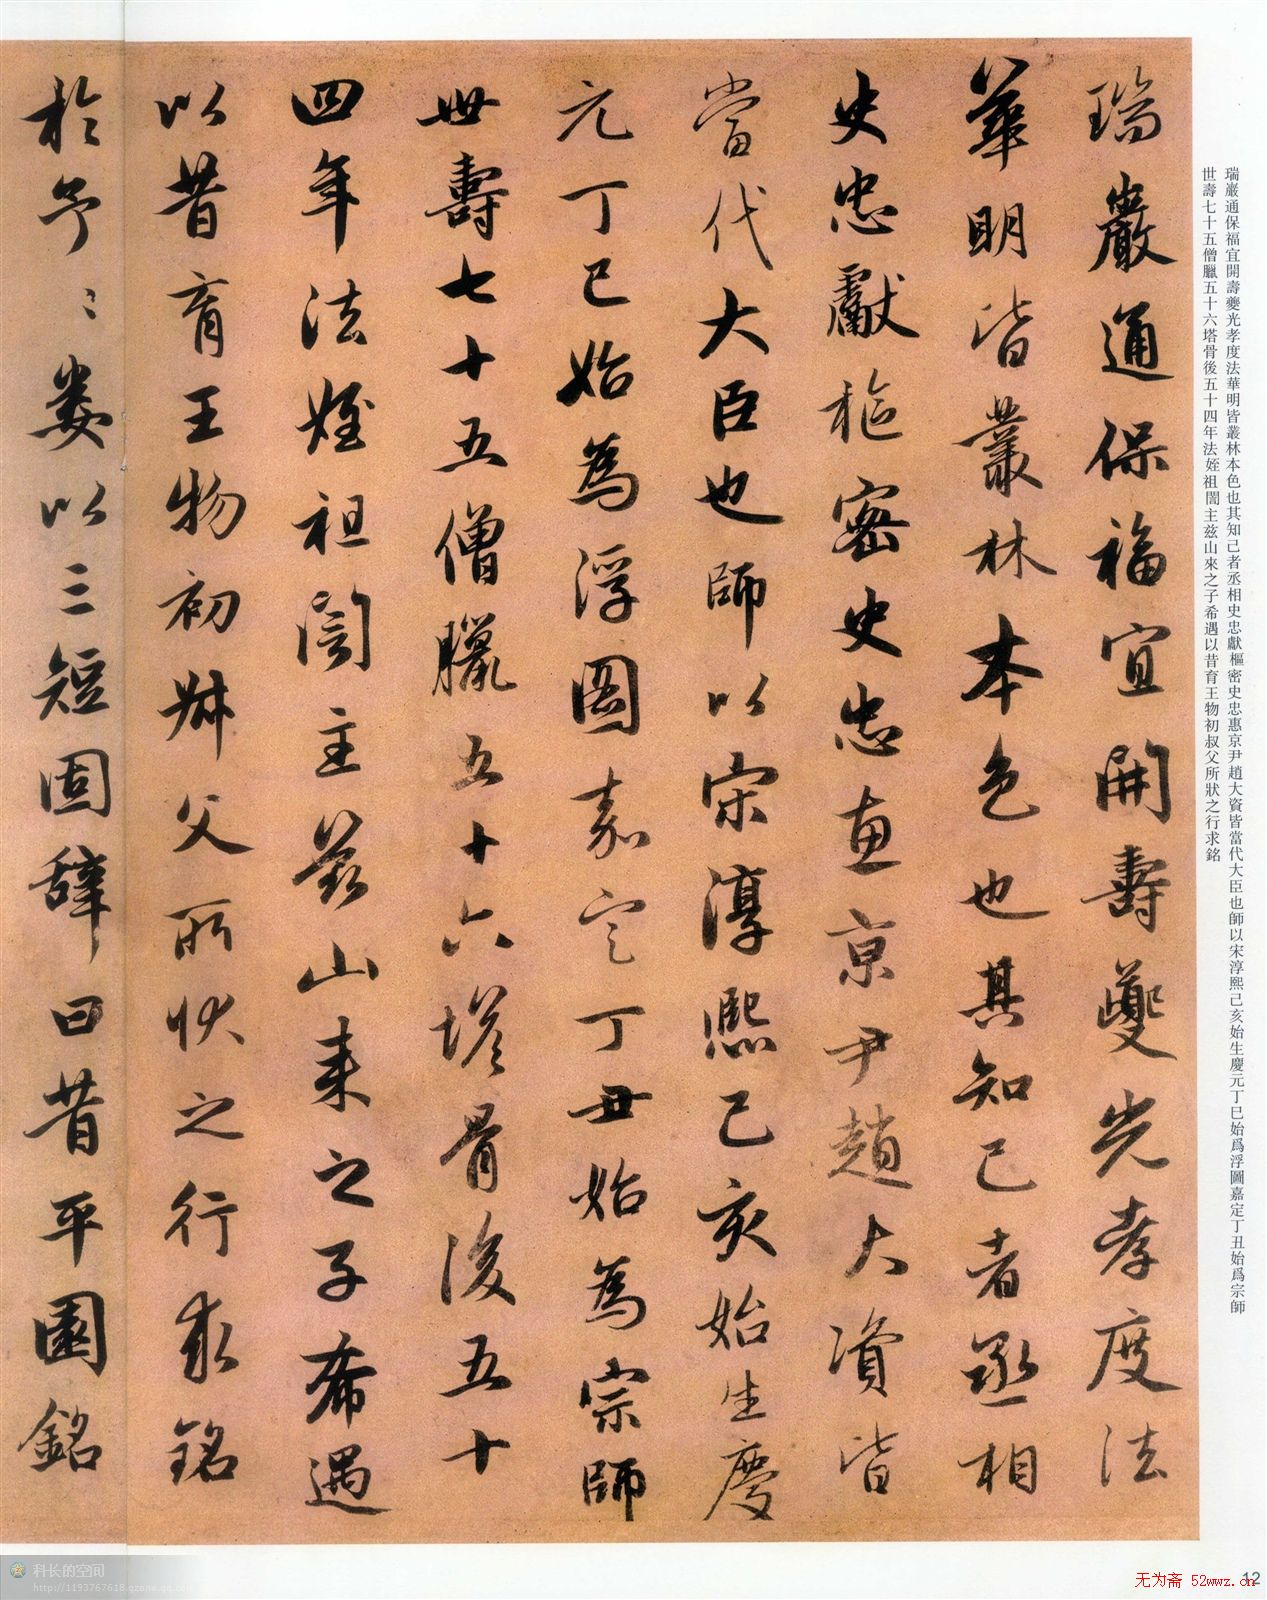 瑞巖通保福宜開壽夔光孝度法華明皆叢林本色也其知己者丞相史忠獻樞密史忠惠京尹趙大資皆當代大臣也師以宋淳熙己亥始生慶元丁巳始爲浮圖嘉定丁丑始爲宗師
世壽七十五僧臘五十六塔骨後五十四年法姪祖誾主兹山來之子希遇以昔育王物初叔父所狀之行求銘
瑞巖通保福宜開壽夔光孝度法
華明皆叢林本色也其知己者丞相
史忠獻樞密史忠惠京尹趙大資皆
當代大臣也師以宋淳熙己亥始生慶
元丁巳始為浮圖嘉定丁丑始為宗師
世壽七十五僧臘五十六塔骨後五十
四年法姪祖誾主茲山來之子希遇
以昔育王物初叔父所狀之行求銘
於予〻婁以三短固辭曰昔平園銘
科长的空间
http://1193767618.qzone.qq.com
无为斋 52wwz.cn
12